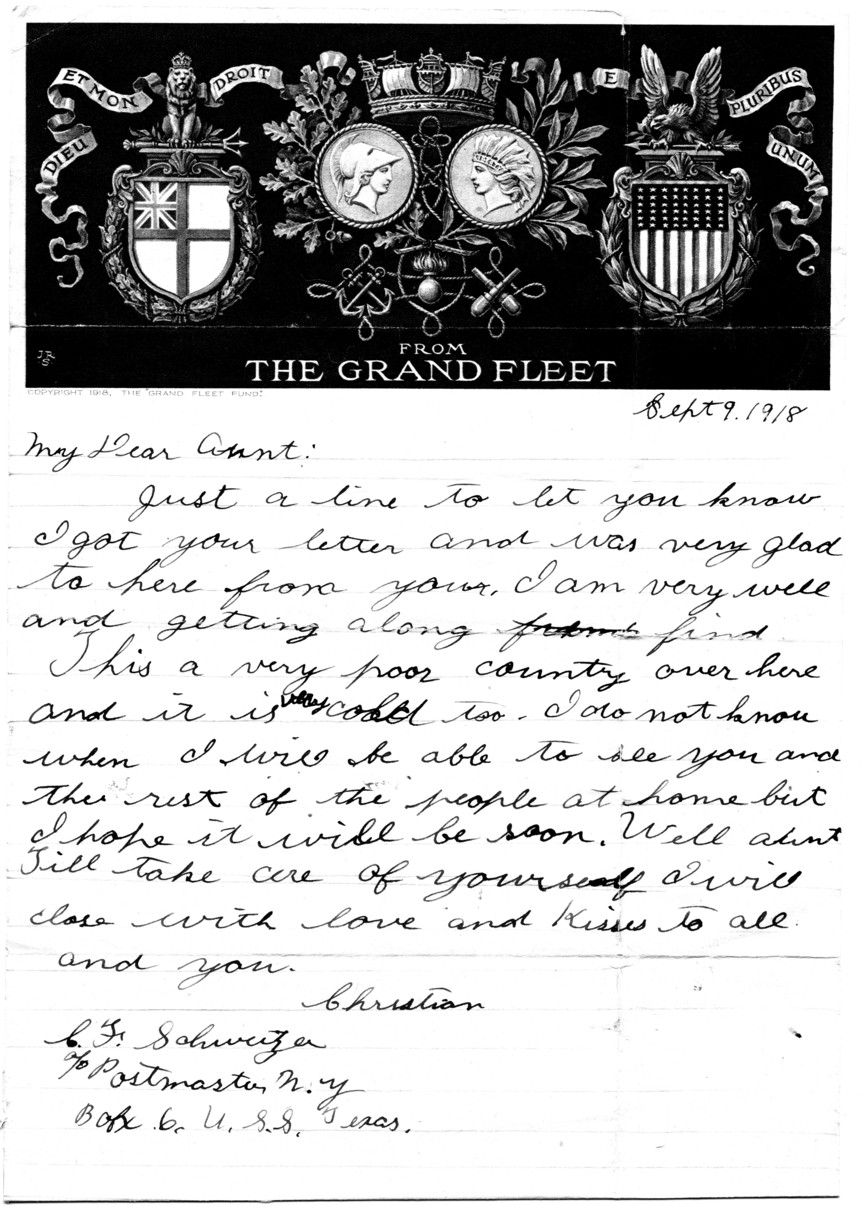 DIEU ET MON DROIT
E PLURIBUS UNUM
JRS
FROM
THE GRAND FLEET
COPYRIGHT 1918, THE "GRAND FLEET FUND."
Sept 9. 1918
My Dear Aunt:
Just a line to let you know
I got your letter and was very glad
to here from your. I am very well
and getting along find
This a very poor country over here
and it is very cold too. I do not know
when I will be able to see you and
the rest of the people at home but
I hope it will be soon. Well aunt
Till take cere of yourself I will
close with love and Kisses to all
and you.
Christian
C. F. Schweitzer
c/o Postmaster, N.Y
Box 6. U.S.S. Texas.